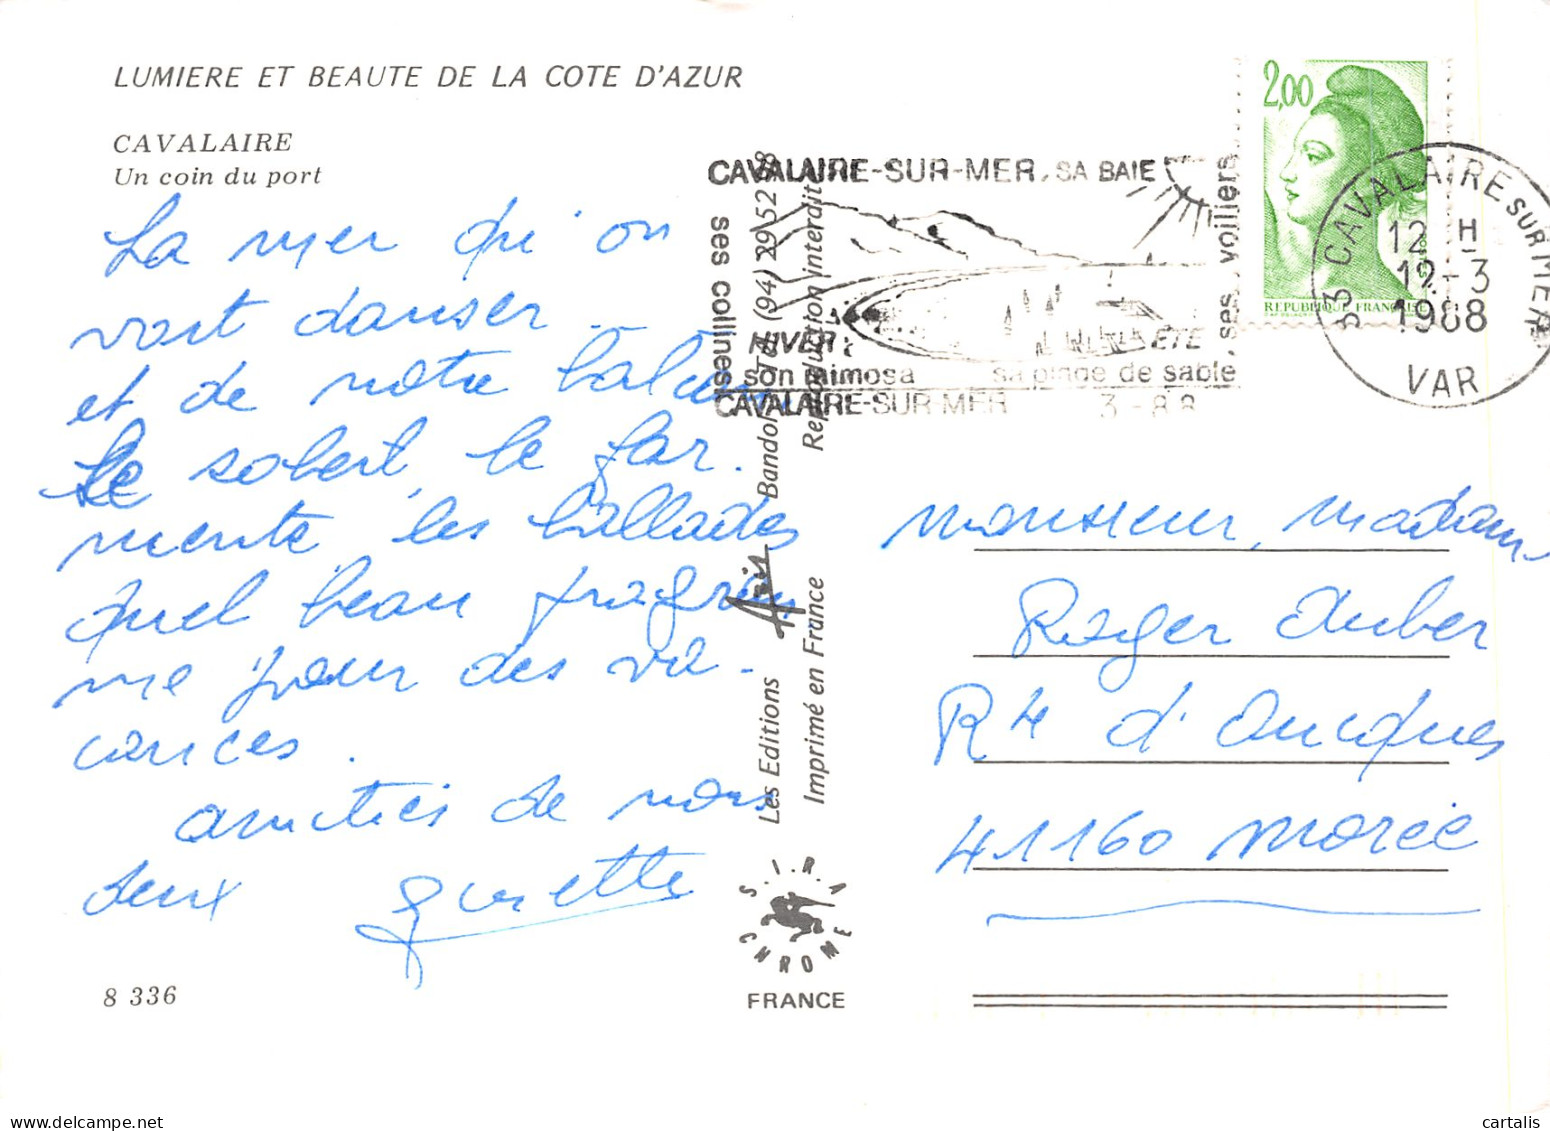 LUMIERE ET BEAUTE DE LA COTE D'AZUR
CAVALAIRE
Un coin du port
La mer qu'on
voit danser.
et de notre balcon
Le soleil, le far-
niente, les ballades
Quel beau program
me pour des va-
cances.
amitiés de nous
deux
8 336
Les Editions Aris Bandol Tél. (94) 29 52 28
Imprimé en France Reproduction interdite
S.I.R.A
CHROME
FRANCE
CAVALAIRE-SUR-MER, SA BAIE
ses collines
ses voiliers
HIVER
son mimosa
ETE
sa plage de sable
CAVALAIRE-SUR MER 3-88
2,00
POSTES
REPUBLIQUE FRANÇAISE
83 CAVALAIRE SUR MER
12 H
12-3
1988
VAR
Monsieur, Madame
Roger Auber
Rte d'Oucques
41160 Morée
cartalis